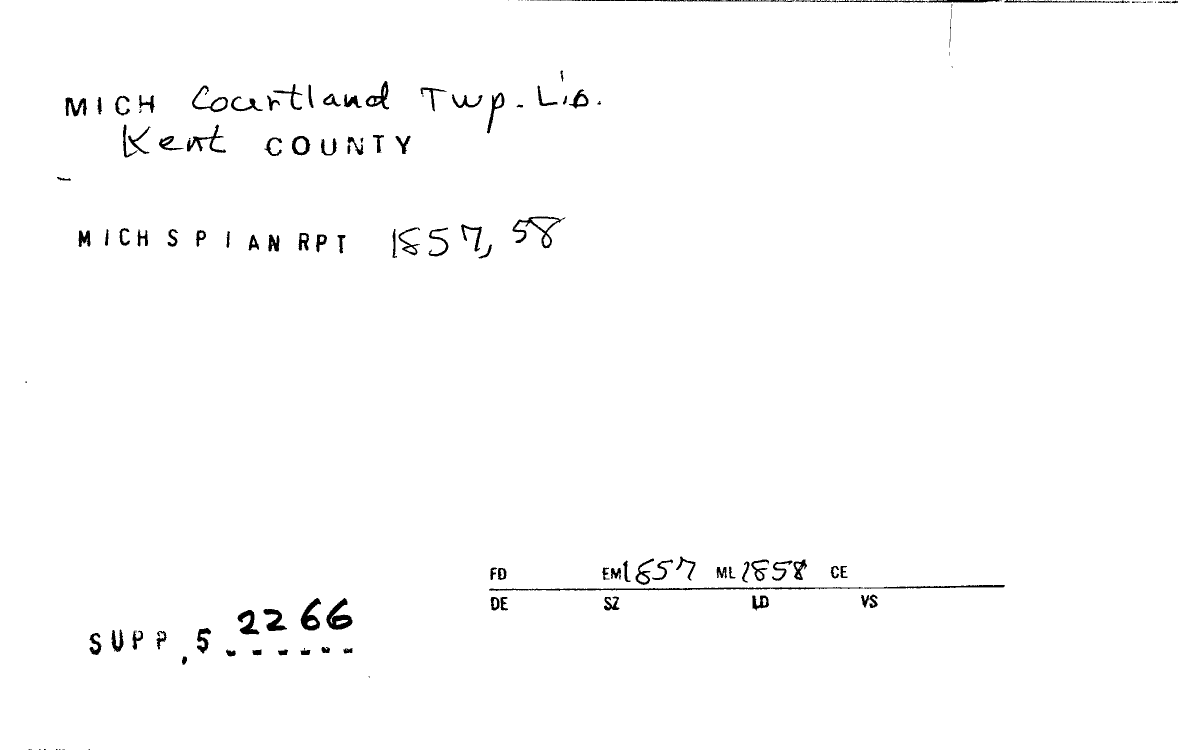 MICH Courtland Twp. Lib.
Kent COUNTY
MICH S P I AN RPT 1857, 58
FD EM 1857 ML 1858 CE
DE SZ LD VS
2266
SUPP, 5 - - - - - -